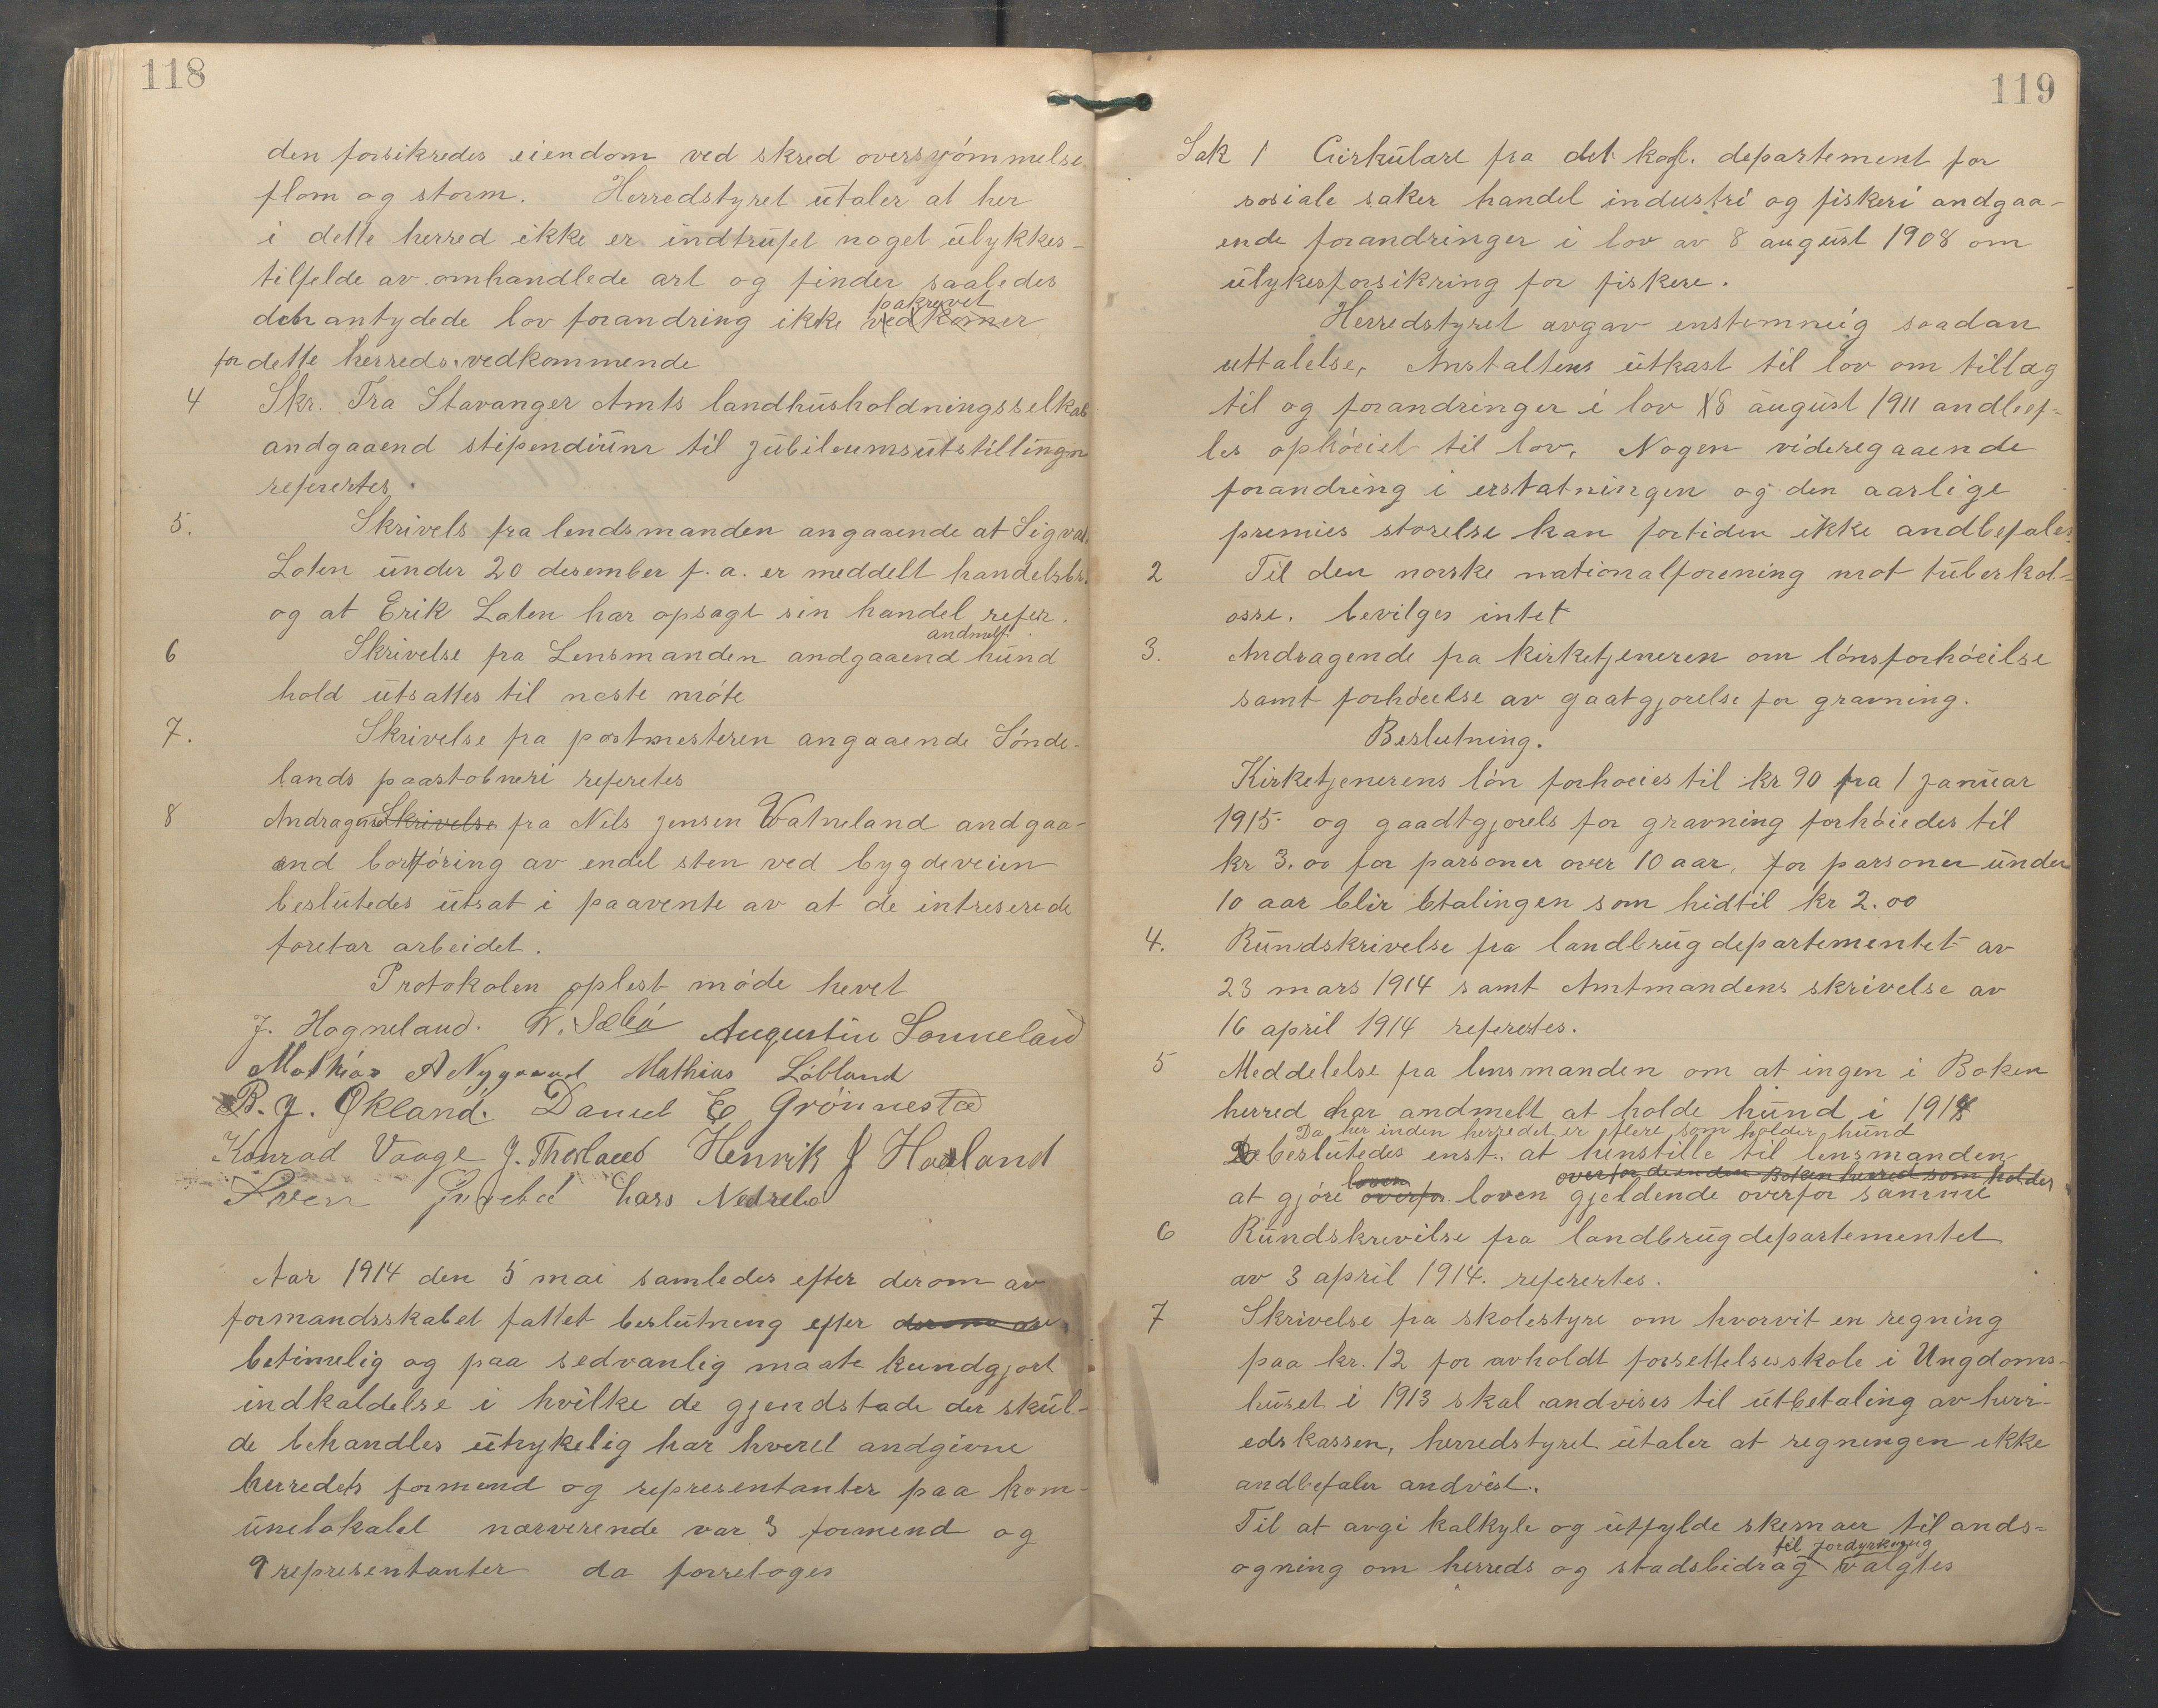 118
den forsikredes eiendom ved skred oversvjømmelse
flom og storm. Herredstyret utaler at her
i dette herred ikke er indtrufet noget ulykkes-
tilfelde av omhandlede art og finder saaledes
pakrevet
den antydede lov forandring ikke vedkomer
for dette herreds vedkommende
4 Skr. Fra Stavanger Amts landhusholdningsselkab
andgaaend stipendium til jubileumsutstillingn
referertes.
5. Skrivels fra lendsmanden angaaende at Sigval
Laten under 20 desember f. a. er meddelt handelsbr.
og at Erik Laten har opsagt sin handel refer.
andmelt
6 Skrivelse fra Lensmanden andgaaend hund
hold utsattes til neste møte
7. Skrivelse fra postmesteren angaaende Sønde-
lands paastobneri referetes
8 Andragend Skrivelse fra Nels Jensen Vatneland andgaa-
end bortføring av endel sten ved bygdeveien
beslutedes utsat i paavente av at de intreserede
foretar arbeidet.
Protokolen oplest møde hevet
J. Hogneland. W. Sælid Augustin Sonneland
Mathias A Nygaard Mathias Løbland
B. J. Økland. Daniel E Grønnestad
Konrad Vaage J. Thorland Henrik J Haaland
Sven Lars Nedrebø
Aar 1914 den 5 mai samledes efter derom av
formandsskabet fattet beslutning efter derom av
betimelig og paa sedvanlig maate kundgjort
indkaldelse i hvilke de gjendstade der skul-
de behandles utrykelig har hveret andgivne
herredets formend og representanter paa kom-
unelokalet nærverende var 3 formend og
9 representanter da forretoges
119
Sak 1 Cirkulare fra det kogl. departement for
sosiale saker handel industri og fiskeri andgaa-
ende forandringer i lov av 8 august 1908 om
ulykesforsikring for fiskere.
Herredstyret avgav enstemmig saadan
uttalelse, Anstaltens utkast til lov om tillæg
til og forandringer i lov 18 august 1911 andbef-
les ophøciet til lov, Nogen videregaaende
forandring i erstatningen og den aarlige
premies storelse kan fortiden ikke andbefales.
2 Til den norske nationalforening mot tuberkol-
osse. bevilges intet
3. Andragende fra kirketjeneren om lønsforhøeilse
samt forhøeelse av gaatgjorelse for gravning.
Beslutning.
Kirketjenerens løn forhoeies til kr 90 fra 1 januar
1915. og gaadtgjorels for gravning forhøiedes til
kr 3.00 for parsoner over 10 aar, for parsoner under
10 aar blir btalingen som hidtil kr 2.00
4. Rundskrivelse fra landbrugdepartementet av
23 mars 1914 samt Amtmandens skrivelse av
16 april 1914 referertes.
5 Meddelelse fra lensmanden om at ingen i Boken
herred har andmelt at holde hund i 1914
Da her inden herredet er flere som holder hund
beslutedes enst. at henstille til lensmanden
loven overfor de enden Boken herred som holder
at gjøre overfor loven gjeldende overfor samme
6 Rundskrevilse fra landbrugdepartementet
av 3 april 1914. referertes.
7 Skrivelse fra skolestyre om hvorvit en regning
paa kr. 12 for avholdt forsettelsesskole i Ungdoms-
huset i 1913 skal andvises til utbetaling av herr-
edskassen, herredstyret utaler at regningen ikke
andbefaler andvist.
Til at avgi kalkyle og utfylde skemaer til ands-
til jordyrkning
ogning om herreds og stadsbidrag valgtes